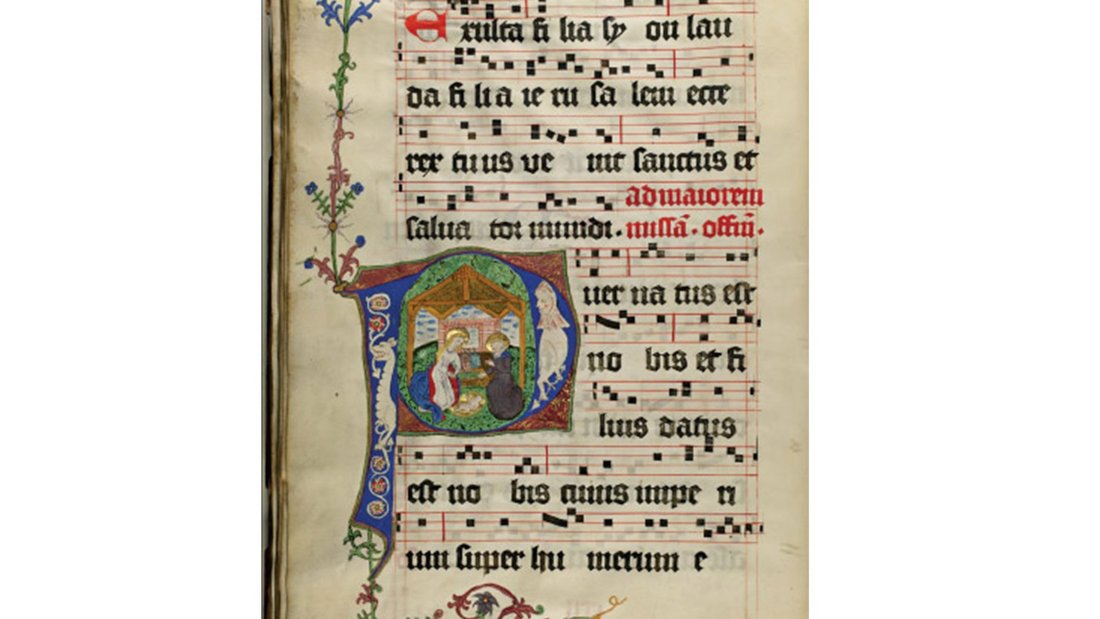 Exulta fi lia sy on lau
da fi li a ie ru sa lem ecce
rex tuus ve nit sanctus et
ad maiorem
salua tor mundi. missā. offiū.
Puer na tus est
no bis et fi
lius datus
est no bis cuius impe ri
um super hu merum e